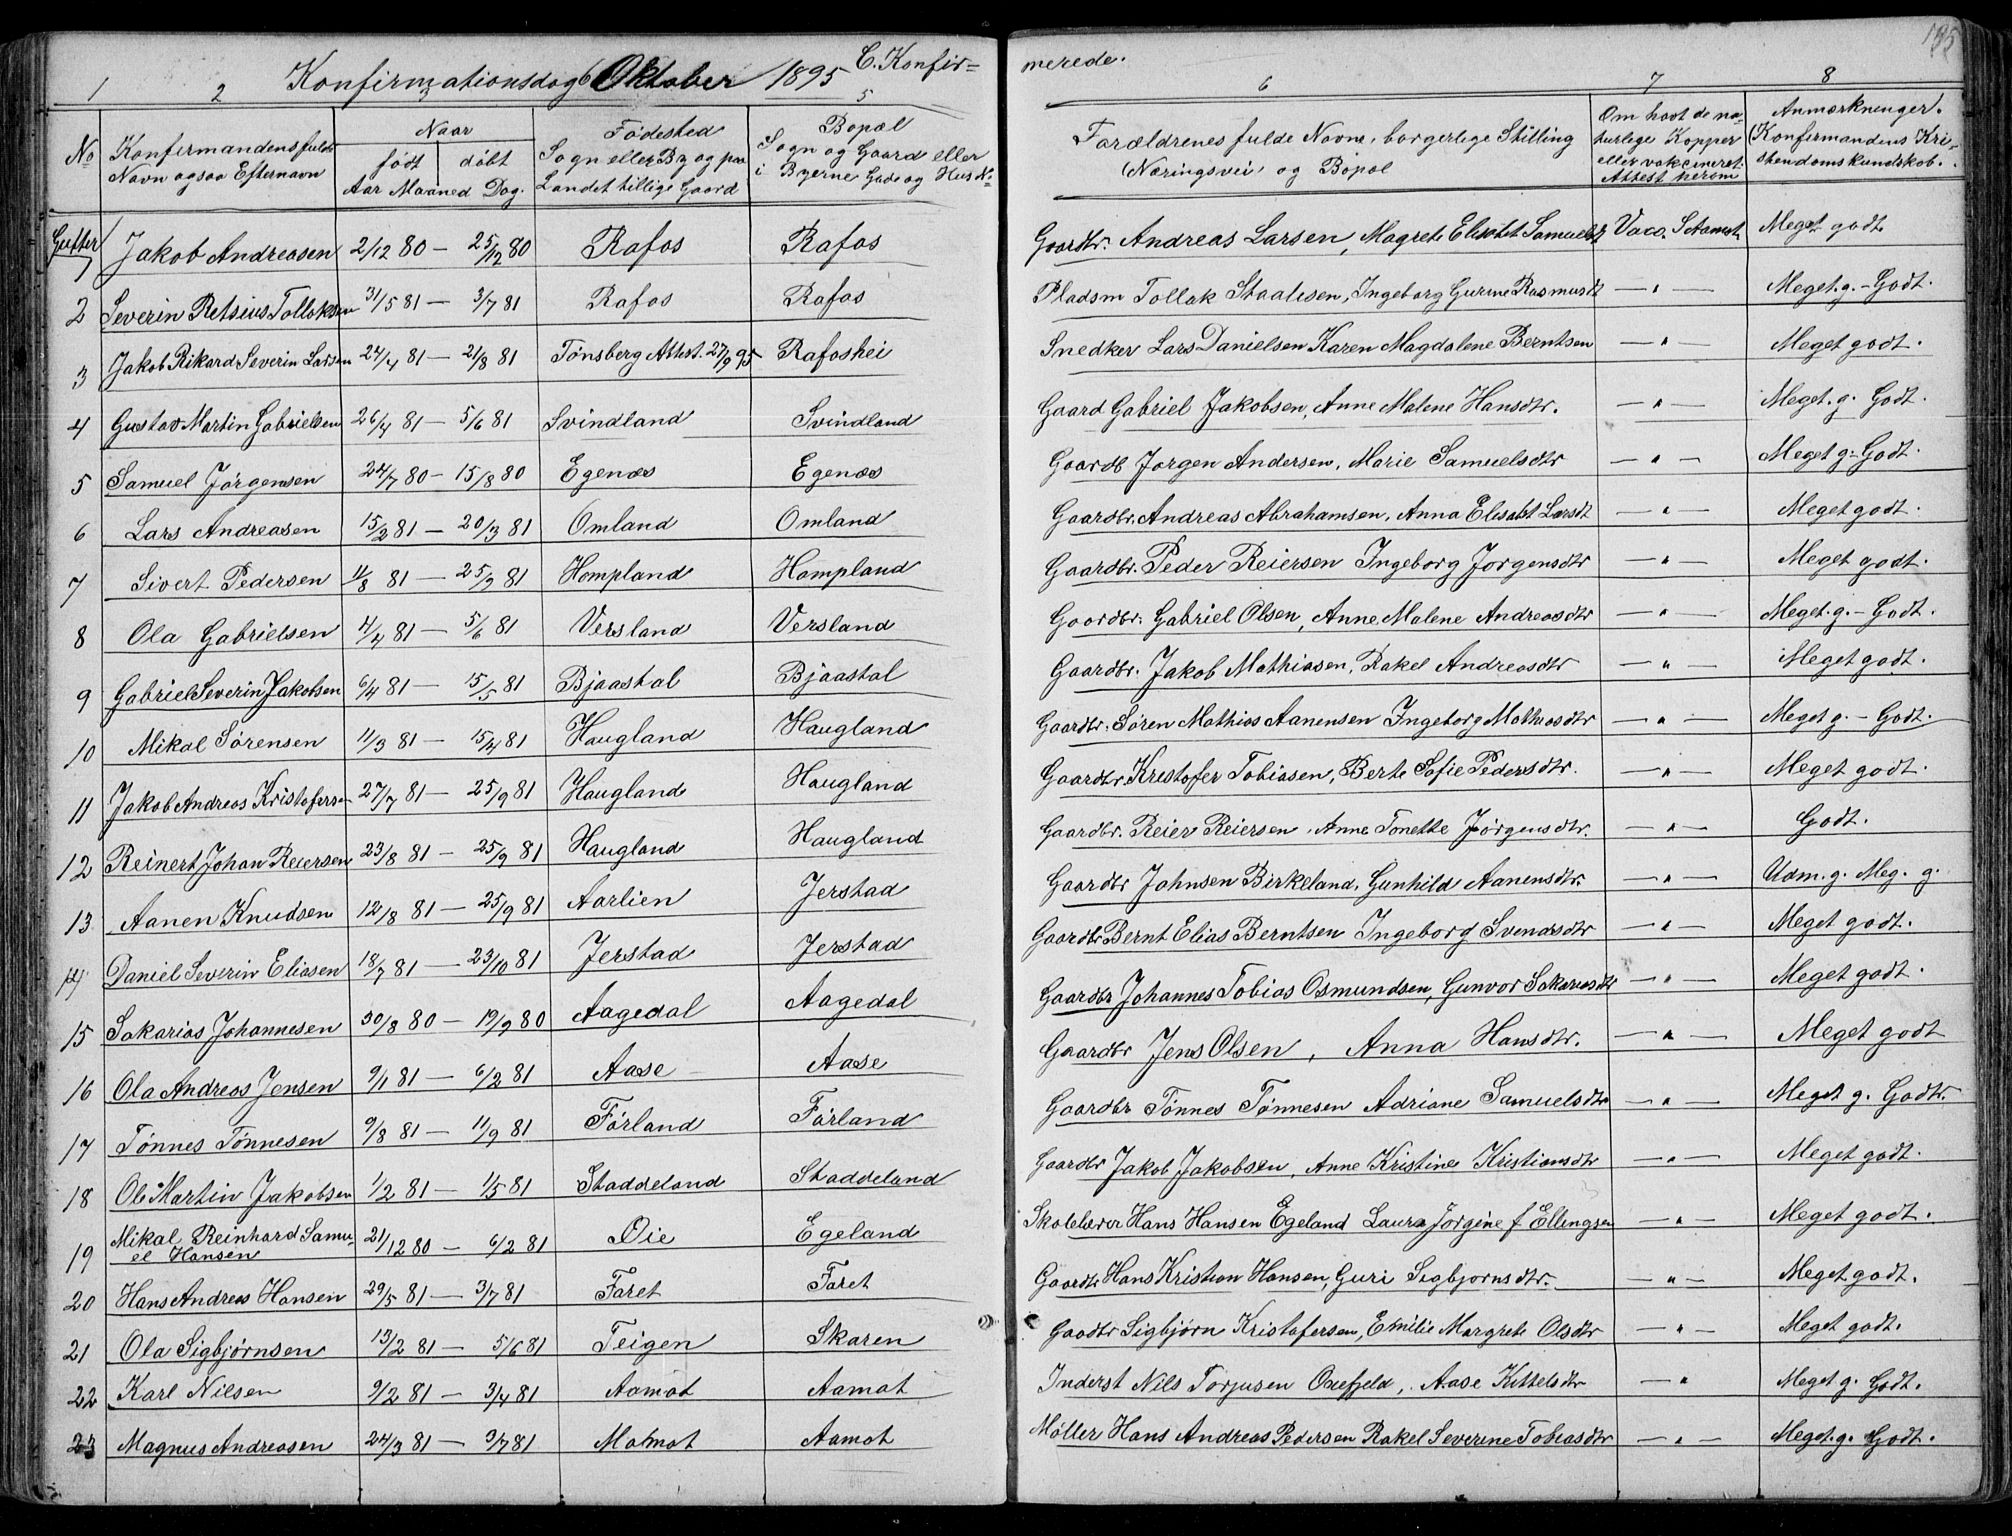 185
Konfirmationsdag 6 Oktober 1895 C. Konfir=
merede.
1 2 3 5
6 7 8
No Konfirmandens fulde Navn ogsaa Efternavn
Naar født døbt Aar Maaned Dag.
Fødested Sogn eller By og paa Landet tillige Gaard
Bopæl Sogn og Gaard eller i Byerne Gade og Hus No
Forældrenes fulde Navne, borgerlige Stilling (Næringsvei) og Bopæl
Om havt de naturlige Kopper eller vakcineret. Attest herom
Anmærkninger. (Konfirmandens Kristendomskundskab.
Gutter
1 Jakob Andreasen 2/12 80 — 25/12 80 Rafos Rafos Gaardbr. Andreas Larsen, Magrete Elisabet Samuelsdt Vacc. S. Aamot Meget godt.
2 Severin Retsius Tollaksen 31/5 81 — 3/7 81 Rafos Rafos Pladsm Tollak Staalesen, Ingeborg Gurine Rasmusdt — " — Meget. g. - Godt.
3 Jakob Rikard Severin Larsen 24/4 81 — 21/8 81 Tønsberg Attest. 27/9 95 Rafoshei Snedker Lars Danielsen Karen Magdalene Berntsen — " — Meget godt.
4 Gustav Martin Gabrielsen 26/4 81 — 5/6 81 Svindland Svindland Gaard Gabriel Jakobsen, Anne Malene Hansdtr. — " — Meget. g. Godt.
5 Samuel Jørgensen 24/7 80 — 15/8 80 Egenæs Egenæs Gaardb Jørgen Andersen, Marie Samuelsdtr — " — Meget g - Godt.
6 Lars Andreasen 15/2 81 — 20/3 81 Omland Omland Gaardbr. Andreas Abrahamsen, Anna Elisabet Larsdt — " — Meget godt.
7 Sivert Pedersen 11/8 81 — 25/9 81 Hompland Hompland Gaardbr. Peder Reiersen Ingeborg Jørgensdtr — " — Meget godt.
8 Ola Gabrielsen 4/4 81 — 5/6 81 Versland Versland Gaardbr. Gabriel Olsen, Anne Malene Andreasdtr — " — Meget. g. - Godt.
9 Gabriel Severin Jakobsen 6/4 81 — 15/5 81 Bjaastal Bjaastal Gaardbr. Jakob Mathiasen, Rakel Andreasdtr — " — Meget godt.
10 Mikal Sørensen 11/3 81 — 15/4 81 Haugland Haugland Gaardbr. Søren Mathias Aanensen Ingeborg Mathiasdtr — " — Meget g. - Godt.
11 Jakob Andreas Kristofersen 27/7 81 — 25/9 81 Haugland Haugland Gaardbr Kristofer Tobiasen, Berte Sofie Pedersdtr. — " — Meget godt.
12 Reinert Johan Reiersen 23/8 81 — 25/9 81 Haugland Haugland Gaardbr. Reier Reiersen, Anne Tonette Jørgensdtr. — " — Godt.
13 Aanen Knudsen 12/8 81 — 25/9 81 Aarlien Jerstad Gaardbr Johnsen Birkeland, Gunhild Aanensdtr. — " — Udm. g. Meg. g.
14 Daniel Severin Eliasen 18/7 81 — 23/10 81 Jerstad Jerstad Gaardbr Bernt Elias Berntsen Ingeborg Svendsdtr — " — Meget godt.
15 Sakarias Johannesen 30/8 80 — 19/9 80 Aagedal Aagedal Gaardbr Johannes Tobias Osmundsen, Gunvor Sakariasdtr — " — Meget godt.
16 Ola Andreas Jensen 9/1 81 — 6/2 81 Aase Aase Gaardbr Jens Olsen, Anna Hansdtr. — " — Meget godt
17 Tønnes Tønnesen 9/8 81 — 11/9 81 Førland Førland Gaardbr Tønnes Tønnesen Adriane Samuelsdtr — " — Meget g. Godt.
18 Ole Martin Jakobsen 1/2 81 — 1/5 81 Staddeland Staddeland Gaardbr Jakob Jakobsen, Anne Kristine Kristiansdtr — " — Meget godt.
19 Mikal Reinhard Samuel Hansen 21/12 80 — 6/2 81 Øie Egeland Skolelærer Hans Hansen Egeland Laura Jørgine f Ellingsen — " — Meget godt.
20 Hans Andreas Hansen 29/5 81 — 3/7 81 Faret Faret Gaardbr Hans Kristian Hansen, Guri Sigbjørnsdtr. — " — Meget godt.
21 Ola Sigbjørnsen 13/2 81 — 5/6 81 Teigen Skaren Gaadbr Sigbjørn Kristofersen, Emilie Margrete Olsdtr — " — Meget godt.
22 Karl Nilsen 9/2 81 — 3/4 81 Aamot Aamot Inderst Nils Torjusen Oxefjeld, Aase Kittelsdtr — " — Meget g. Godt.
23 Magnus Andreasen 24/3 81 — 9/7 81 Molmot Aamot Møller Hans Andreas Pedersen Rakel Severine Tobiasdtr — " — Meget. g. Godt.